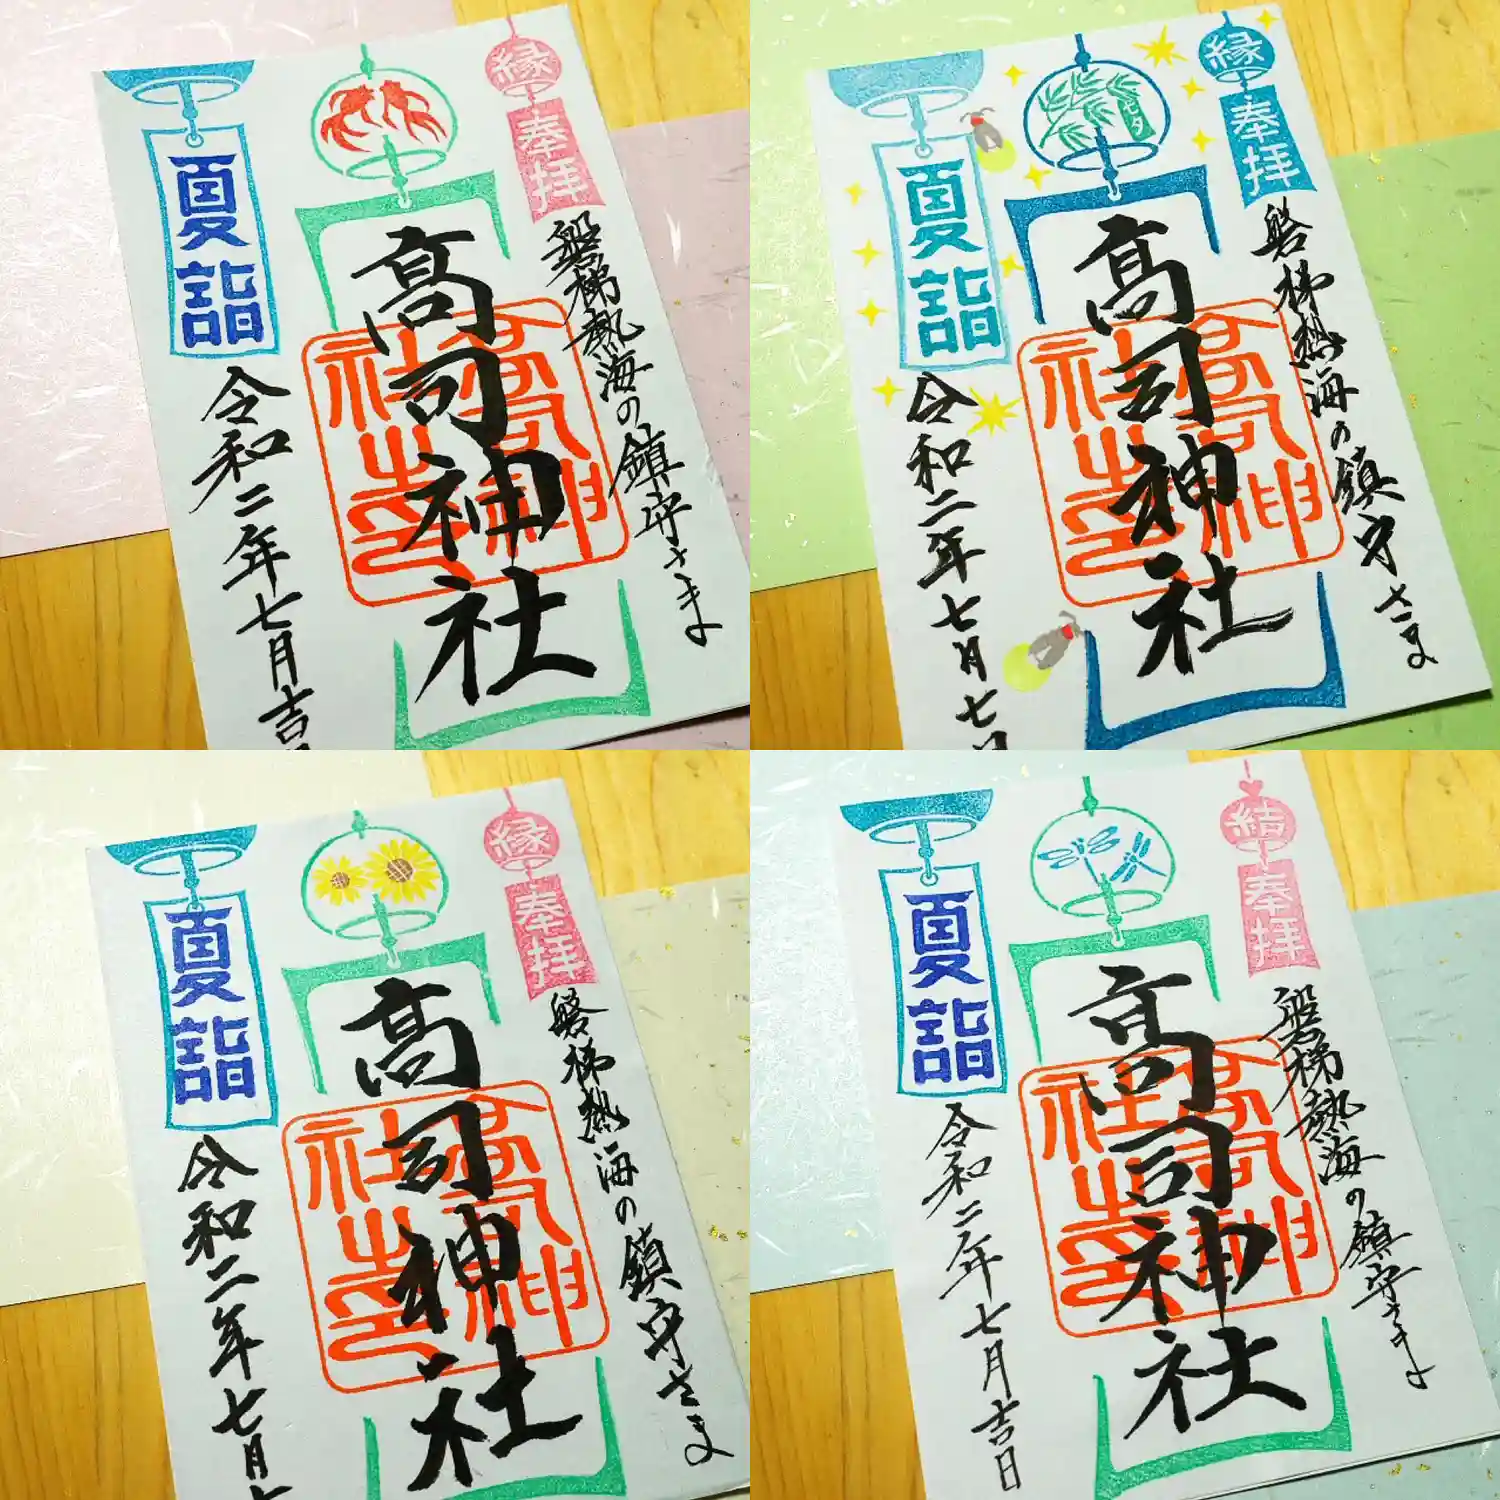 縁
奉拝
磐梯熱海の鎮守さま
高司神社
高司神社之印
夏詣
令和二年七月吉日
縁
奉拝
磐梯熱海の鎮守さま
七夕
高司神社
高司神社之印
夏詣
令和二年七月七日
縁
奉拝
磐梯熱海の鎮守さま
高司神社
高司神社之印
夏詣
令和二年七月七
結
奉拝
磐梯熱海の鎮守さま
高司神社
高司神社之印
夏詣
令和二年七月吉日